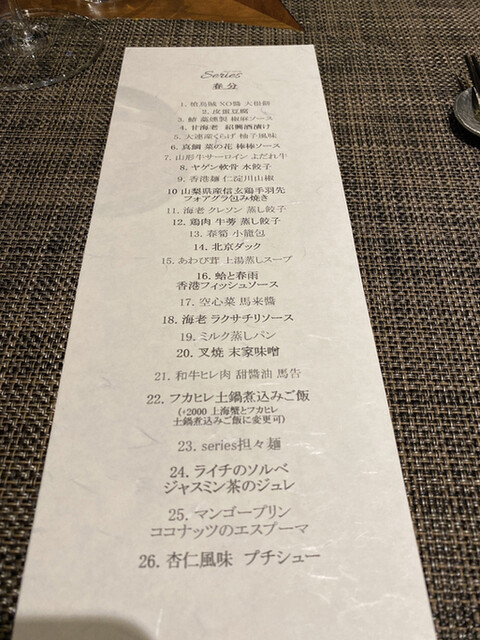 Series
春分
1. 槍烏賊 XO醬 大根餅
2. 皮蛋豆腐
3. 鰆 藁燻製 椒麻ソース
4. 甘海老 紹興酒漬け
5. 大連産くらげ 柚子風味
6. 真鯛 菜の花 棒棒ソース
7. 山形牛サーロイン よだれ牛
8. ヤゲン軟骨 水餃子
9. 香港麺 仁淀川山椒
10 山梨県産信玄鶏手羽先
フォアグラ包み焼き
11. 海老 クレソン 蒸し餃子
12. 鶏肉 牛蒡 蒸し餃子
13. 春筍 小籠包
14. 北京ダック
15. あわび茸 上湯蒸しスープ
16. 蛤と春雨
香港フィッシュソース
17. 空心菜 馬来醬
18. 海老 ラクサチリソース
19. ミルク蒸しパン
20. 叉焼 末家味噌
21. 和牛ヒレ肉 甜醬油 馬告
22. フカヒレ土鍋煮込みご飯
(+2000 上海蟹とフカヒレ
土鍋煮込みご飯に変更可)
23. series担々麺
24. ライチのソルベ
ジャスミン茶のジュレ
25. マンゴープリン
ココナッツのエスプーマ
26. 杏仁風味 プチシュー